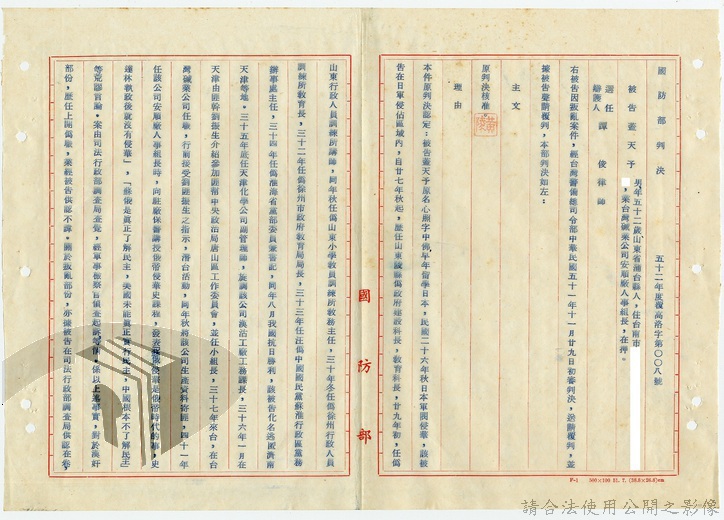 國防部判決
五十二年度覆高洛字第〇〇八號
被告 蓋天予 男，年五十二歲，山東省蒲台縣人，住台南市
，業台灣碱業公司安順廠人事組長，在押。
選任辯護人 譚俊律師
右被告因叛亂案件，經台灣警備總司令部中華民國五十一年十一月廿九日初審判決，送請覆判，並
據被告聲請覆判，本部判決如左：
主文
原判決核准。
理由
本件原判決認定：被告蓋天予原名心願字中傳，早年留學日本，民國二十六年秋日本軍閥侵華，該被
告在日軍侵佔區域內，自廿七年秋起，歷任山東 縣偽政府建設科長，教育科長，廿九年初，任偽
山東行政人員訓練所講師，同年秋任偽山東小學教員訓練所教務主任，三十年冬任偽徐州行政人員
訓練所教育長，三十二年任偽徐州市政府教育局局長，三十三年任汪偽中國國民黨蘇准行政區黨務
辦事處主任，三十四年任偽淮海省黨部委員兼書記，同年八月我國抗日勝利，該被告化名逃匿濟南
天津等地。三十五年底任天津化學公司副管理師，旋調該公司漢沽工廠工務課長，三十六年一月在
天津由匪幹劉振生介紹參加匪幫中央政治局唐山區工作委員會，並任小組長，三十七年來台，在台
灣碱業公司任職，行前接受劉匪振生之指示，潛台活動，同年秋將該公司生產資料寄匪，四十一年
任該公司安順廠人事組長時，向駐廠保警講授俄帝侵華史課程，發表 俄侵華是俄帝時代的事，史
達林執政後就沒有侵華」，「蘇俄是真正了解民主，美國未能真正實行民主，中國根本不了解民主」
等荒謬言論。案由司法行政部調查局查覺，經軍事檢察官偵查起訴等情，係以上述事實，對於漢奸
部份，歷任上開偽職，業經被告供認不諱。關於叛亂部份，亦據被告在司法行政部調查局供認在卷，
國防部
F-1 500×100 51. 7. (38.8×26.6)cm
請合法使用公開之影像